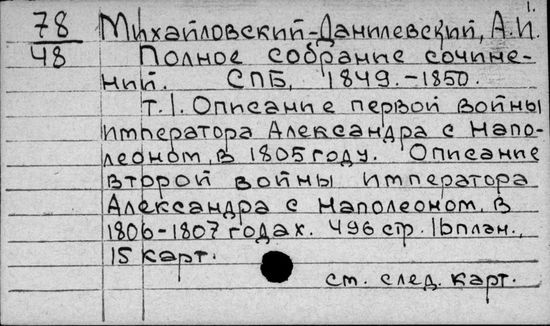 78
48
1.
Михайловский-Данилевский, А.И.
Полное собрание сочине-
ний. СПБ, 1849.-1850.
т.1. Описание первой войны
императора Александра с Напо-
леоном, в 1805 году. Описание
второй войны императора
Александра с Наполеоном, в
1806-1807 годах. 496 стр. 16 план.,
15 карт.
см. след. карт.